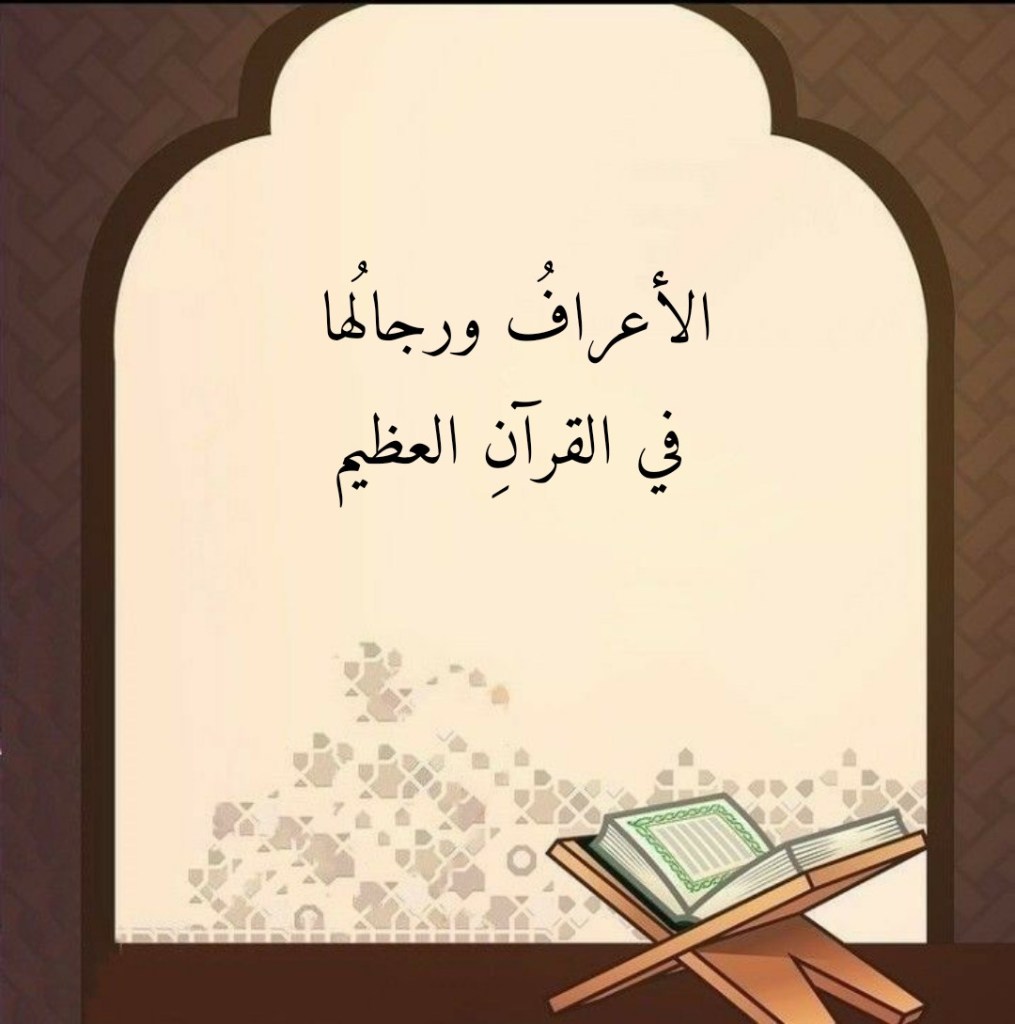 الأعرافُ ورجالُها
في القرآنِ العظيم